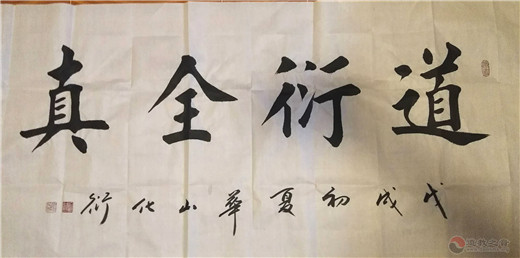 道衍全真
戊戌初夏華山化衍